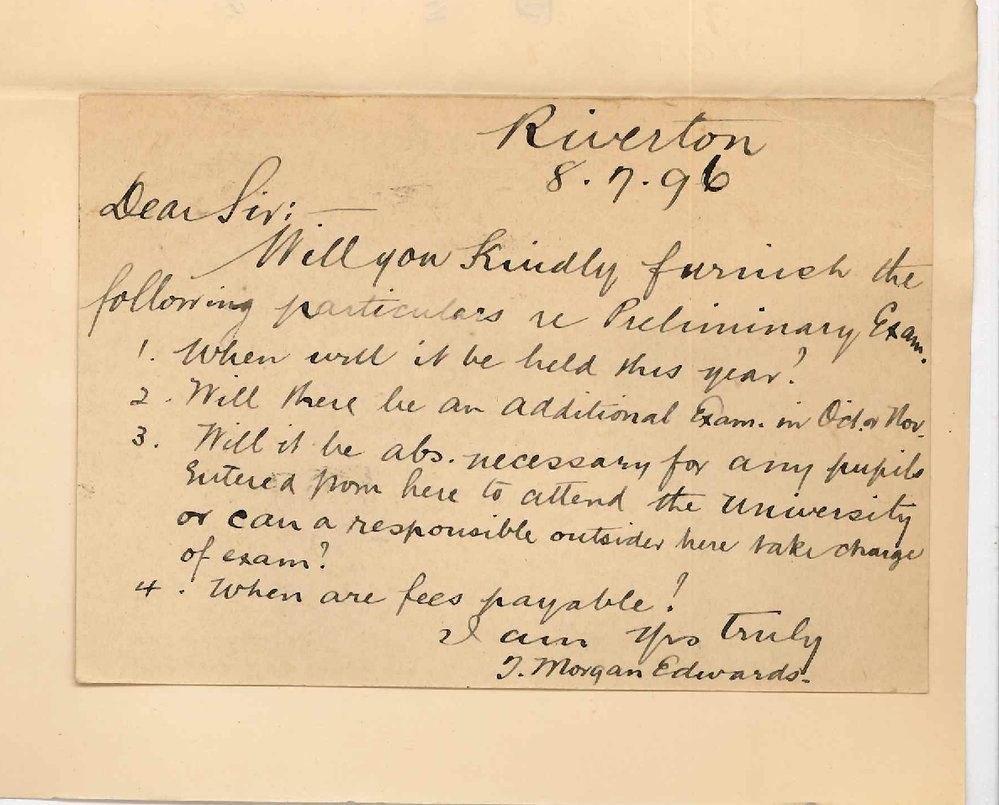 Riverton
8.7.96
Dear Sir: —
Will you kindly furnish the
following particulars re Preliminary Exam.
1. When will it be held this year?
2. Will there be an additional Exam. in Oct. or Nov.
3. Will it be abs. necessary for any pupils
entered from here to attend the University
or can a responsible outsider here take charge
of exam?
4. When are fees payable?
I am yrs truly
T. Morgan Edwards.